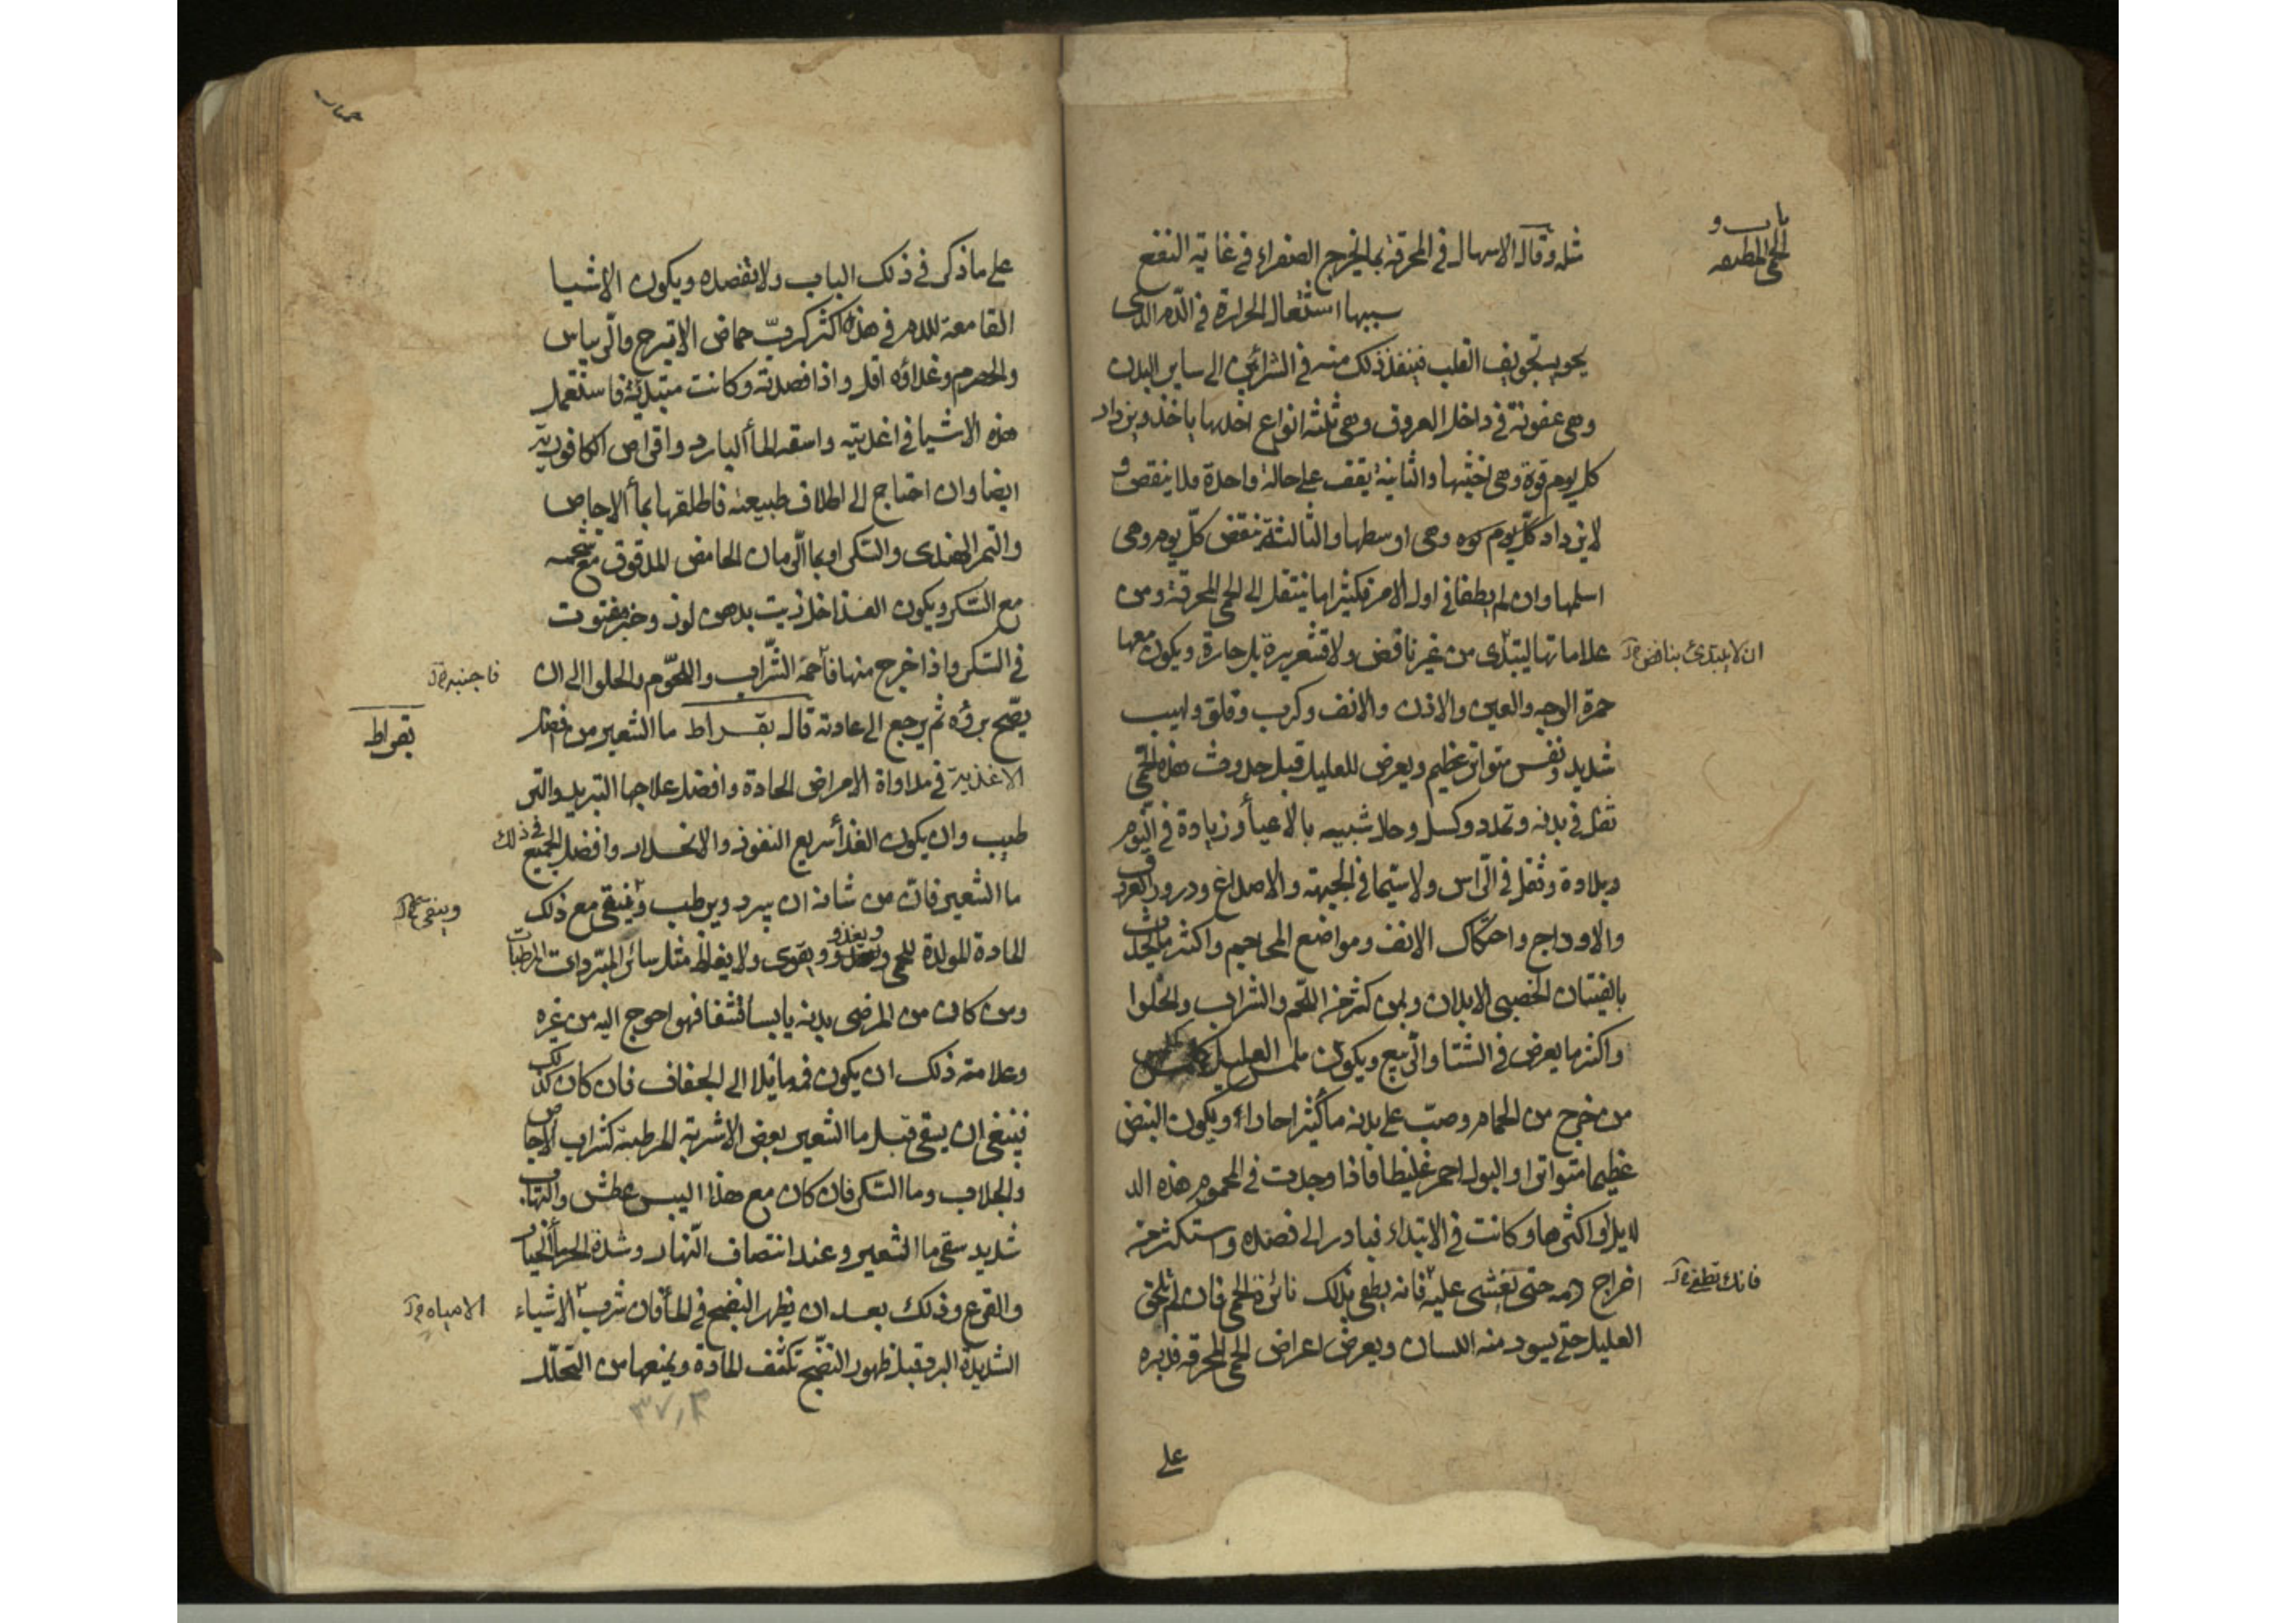 باب و
الحمى المطبقه
مثله وقال الاسهال في المحرقة بما يخرج الصفراء في غاية النفع
سببها اشتعال الحرارة في الدم الذى
يحويه تجويف القلب فينفذ ذلك منه في الشرائين الى ساير البدن
وهى عفونة في داخل العروق وهى ثلثة انواع احدها ياخذ ويزداد
كل يوم قوة وهى اخبثها والثانية يقف على حالة واحدة فلا ينقص و
لا يزداد كل يوم قوه وهى اوسطها والثالثة تنقص كل يوم وهى
اسلمها وان لم يطفا في اول الامر فكثيرا ما ينتقل الى الحمى المحرقة ومن
علاماتها ليبتدى من غير نافض ولا قشعريرة بل حارة ويكون معها
ان لا يبتدئ بنافض
حمرة الوجه والعين والاذن والانف وكرب وقلق ولهيب
شديد ونفس متواتر عظيم ويعرض للعليل قبل حدوث هذه الحمى
ثقل في بدنه وتمدد وكسل وحال شبيه بالاعيأ وزيادة في النوم
وبلادة وثقل في الراس ولا سيما في الجبهة والاصداغ ودرور العرق
والاوداج واحتكاك الانف ومواضع المحاجيم واكثر ما يحدث
بالفتيان الخصبى الابدان وبمن كثر من اللحم والشراب والحلوا
واكثر ما يعرض في الشتا والربيع ويكون ملمس العليل كلمس
من خرج من الحمام وصب على بدنه ماء كثيرا حارا ويكون النبض
عظيما متواترا والبول احمر غليظا فاذا وجدت في المحموم هذه الد
لايل او اكثرها وكانت في الابتداء فبادر الى فصده واستكثر من
اخراج دمه حتى يغشى عليه فانه يطفى بذلك نائرة الحمى فان لم تلحق
فانك تطفى
العليل حتى يسود منه اللسان ويعرض اعراض الحمى المحرقه فدبره
على
على ما ذكر في ذلك الباب ولا تفصده ويكون الاشيا
القامعة للدم في هذه اكثر كرب حماض الاترج والريباس
والحصرم وغذاؤه اقل واذا فصدته وكانت مبتدئة فاستعمل
هذه الاشيا في اغذيته واسقه المأ البارد واقراص الكافورية
ايضا وان احتاج الى اطلاق طبيعته فاطلقها بمأ الاجاص
والتمر الهندى والسكر او بما الرمان الحامض المدقوق مع شحمه
مع السكر ويكون الغذا خل زيت بدهن لوز وخبز مفتوت
في السكر واذا خرج منها فاحمه الشراب واللحوم والحلوا الى ان
فاجنبه
يصح برؤه ثم يرجع الى عادته قال بقراط ما الشعير من افضل
بقراط
الاغذية في مداواة الامراض الحادة وافضل علاجها التبريد والتر
طيب وان يكون الغذأ سريع النفوذ والانحدار وافضل الجميع في ذلك
ما الشعير فان من شانه ان يبرد ويرطب وينقى مع ذلك
وينقى
المادة المولدة للحمى ويغذو ويقوى ولا يغلظ مثل سائر المبردات المرطبات
ومن كان من المرضى بدنه يابسا قشفا فهو احوج اليه من غيره
وعلامة ذلك ان يكون فمه مائلا الى الجفاف فان كان كذلك
فينبغى ان يسقى قبل ما الشعير بعض الاشربة المرطبة كشراب الاجاص
والجلاب وما السكر فان كان مع هذا اليبس عطش والتهاب
شديد سقى ما الشعير وعند انتصاف النهار وشدة الحر مأ الخيار
والقرع وذلك بعد ان يظهر النضج في المأ فان شرب الاشياء
الامياه
الشديدة البرد قبل ظهور النضج تكثف المادة ويمنعها من التحلل